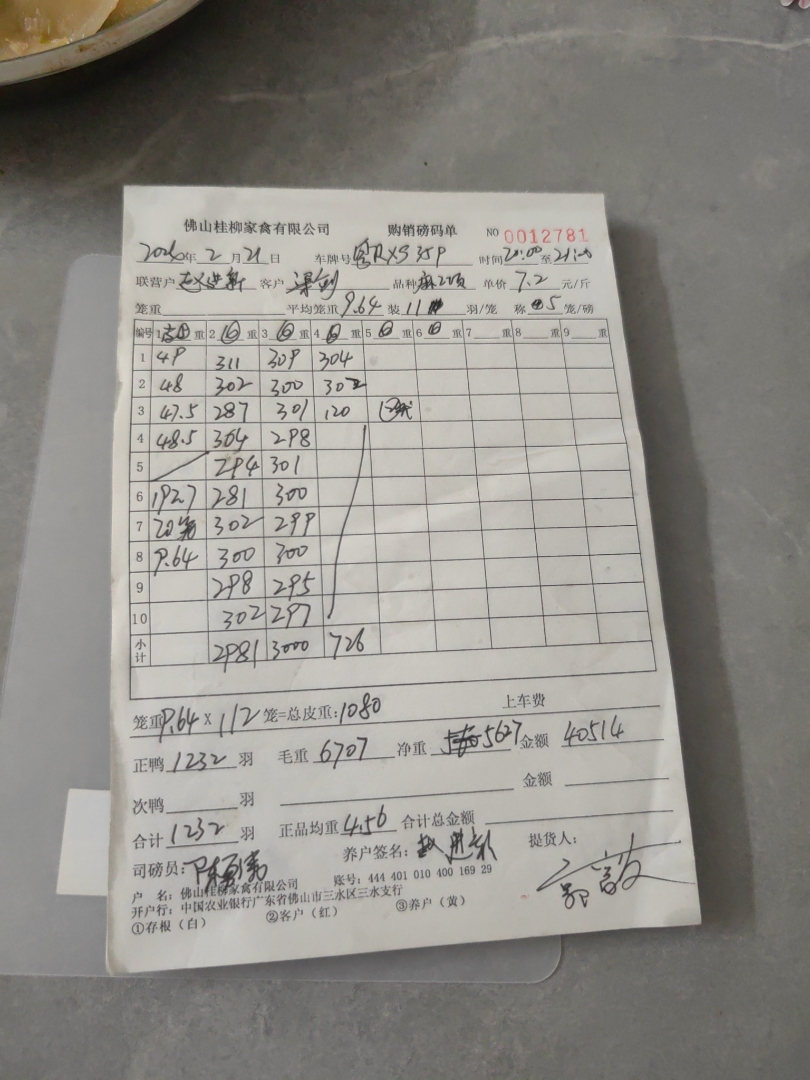 佛山桂柳家禽有限公司 购销磅码单 NO 0012781
2026年 2月 21日 车牌号 粤RXS35P 时间 20:00 至 21:00
联营户 赵进新 客户 梁剑 品种 单价 7.2 元/斤
笼重 平均笼重 9.64 装 11 羽/笼 称 5 笼/磅
编号 1 重 2 重 3 重 4 重 5 重 6 重 7 重 8 重 9 重
1 49 311 309 304
2 48 302 300 302
3 47.5 287 301 120
4 48.5 304 298
5 294 301
6 192.7 281 300
7 20笼 302 299
8 9.64 300 300
9 298 295
10 302 297
小计 2981 3000 726
笼重 9.64 × 112 笼=总皮重: 1080 上车费
正鸭 1232 羽 毛重 6707 净重 5627 金额 40514
次鸭 羽 金额
合计 1232 羽 正品均重 4.56 合计总金额
司磅员: 养户签名: 赵进新 提货人:
户 名: 佛山桂柳家禽有限公司 账号: 444 401 010 400 169 29
开户行: 中国农业银行广东省佛山市三水区三水支行
①存根（白） ②客户（红） ③养户（黄）